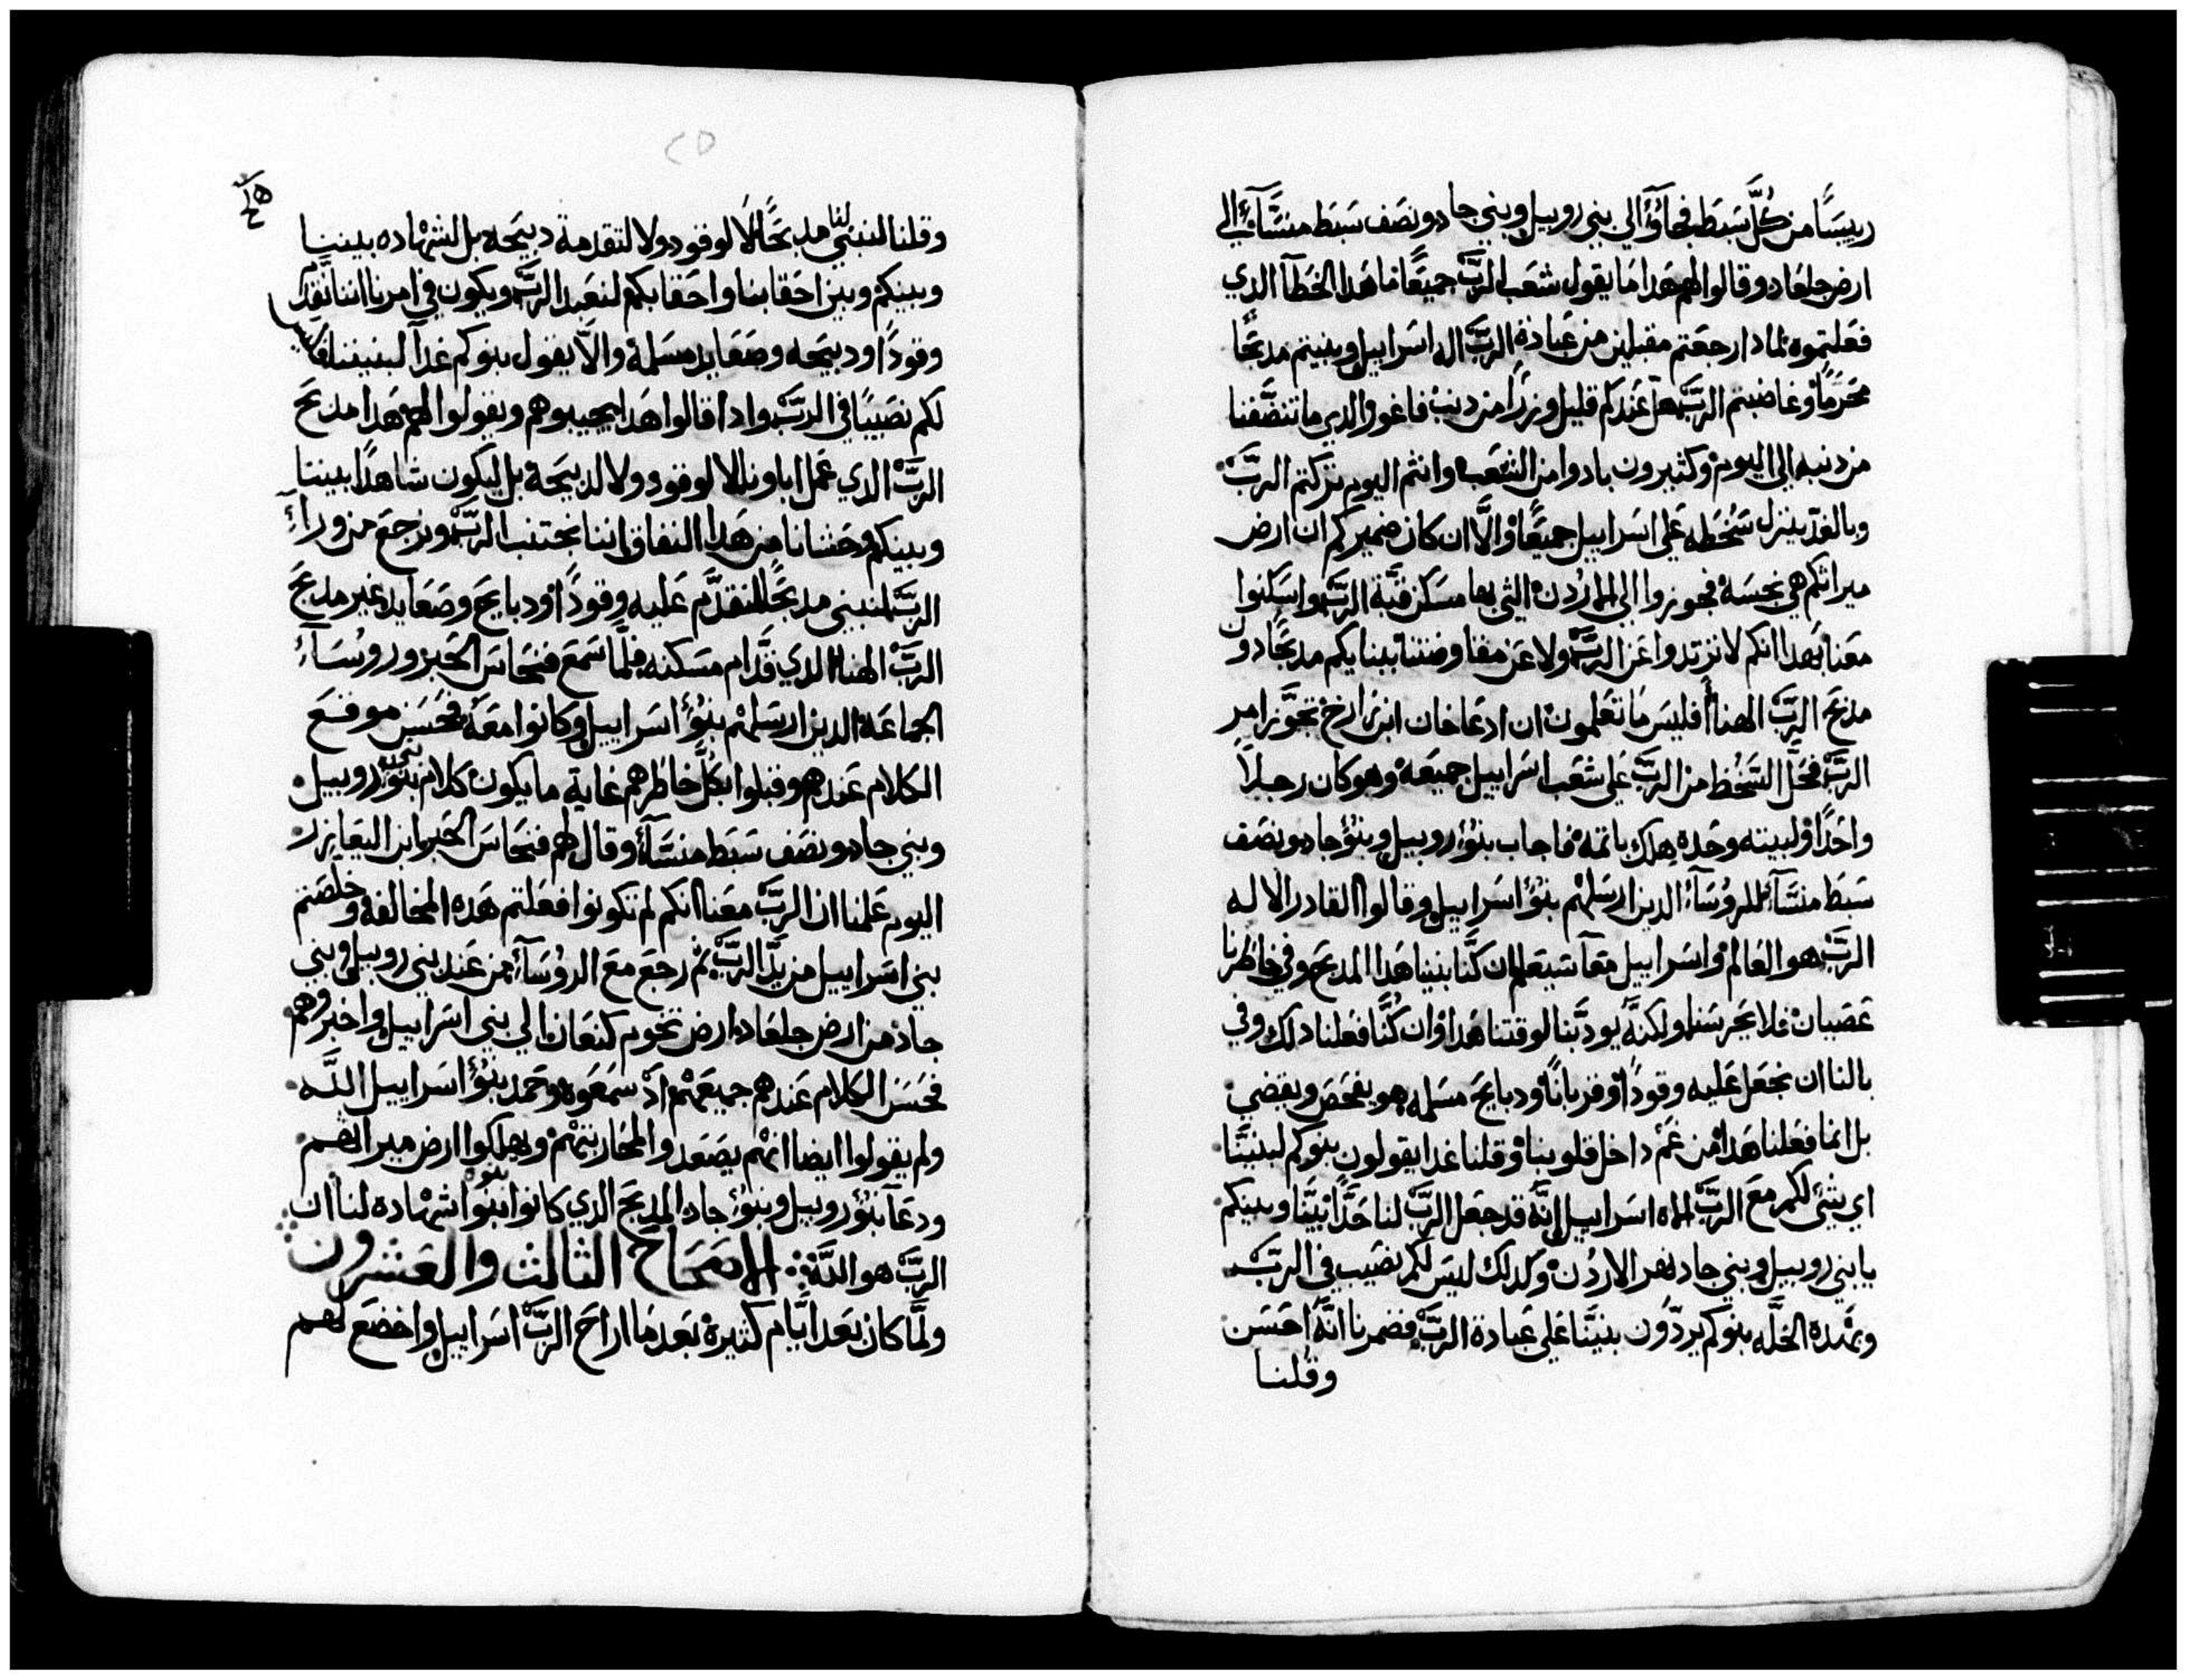 رييسًا من كلّ سَبَط فجاَؤُا الي بني روبيل وبني جاد ونصَف سَبَط منسَّآء الي
ارض جلعَاد وقالوا لهم هَدا مَا يقول شعَب الربّ جميعًا ما هَدا الخطآ الدي
فعَلتموه لمادا رجعَتم مقبلين من عَبادة الربّ اله اسَراييل وبنيتم مدبحًا
محَرمًا وغاضبتم الربّ هل عَندكم قليل وزرًا من دنب فاغور الدي ما تنضَّفنا
من دنبه الي اليوم وكثيرون بادوا من الشعَب وانتم اليوم تركتم الربّ
وبالغد ينزل سُخطه عَلي اسَراييل جميعًا والَّا ان كان ضميركم ان ارض
ميراثكم هي نجسَه فجوزوا الي الاردن التي بها مسَكن قبَّة الربّ واسَكنوا
معَنا بهَدا انكم لا ترتدوا عَن الربّ ولا عَن مفاوضتنا ببنايكم مدبحًا دون
مدبَح الربّ الهنا أفليسَ مَا تعَلمون ان ادعَاخان ابن زارخ تجوَّز امر
الربّ فحَلّ السَّخط من الربّ عَلي شعَب اسَراييل جميعَه وهو كان رجلاً
واحَدًا وليته وحَده هلك باتمه فاجاب بنُوُ روبيل وبنُوُ جاد ونصَف
سَبَط منسَّآء للروُسَآء الدين ارسَلهم بنُوُ اسَراييل وقالوا القادر الاله
الربّ هو العَالم واسَراييل معًا سَيعَلم ان كنَّا بنينا هَدا المدبَح وفي خاطرنا
عَصَيان فلا يحَرسَنا ولكنَّه يودّبنا لوقتنا هَدا وان كُنَّا فعَلنا دلك وفي
بالنا ان نجعَل عَليه وقودًا وقربانًا ودبايَح مسَلمه هو يفحَص ويقضي
بل انما فعَلنا هَدا من غَمّ داخل قلوبنا وقلنا غدا يقولون بنوكم لبنينَّا
اي شيئ لكم مَع الربّ اله اسَراييل انَّه قد جعَل الربّ لنا حَدًّا بيننَّا وبينكم
يا بني روبيل وبني جاد نهر الاردُن وكدلك ليسَ لكم نصَيب في الربّ
وبهَده الخلَّه بنوكم يردّون بنينَّا عَلي عَبادة الربّ فضمرنا انَّه احَسَن
وقلنا
٢٥
وقلنا لنبني لنا مدبحًا لا لوقود ولا لتقدمة دبيحَه بل لشهاده بيننا
وبينكم وبين احَقابنا واحَقابكم لنعَبد الربّ ويكون في امرنا اننا نقدم
وقودًا ودبيحَه وصَعَايد مسَلمة والاّ يقول بنوكم غدًا لبنيننا ليس
لكم نصَيبًا في الربّ وادا قالوا هَدا يجيبوهم ويقولوا لهم هَدا مدبَح
الربّ الدي عَمل اباونا لا لوقود ولا لدبيحَة بل ليكون شاهدًا بيننا
وبينكم وحَشانا من هَدا النفاق اننا نجتنب الربّ ونرجعَ من ورآء
الربّ لنبني مدبحًا لنقدَّم عَليه وقودًا ودبايَح وصَعَايد غير مدبَح
الربّ الهنا الدي قدَّام مسَكنه فلمَّا سَمَع فنحَاسَ الحَبر وروُسَآء
الجماعَة الدين ارسَلهم بنُوُ اسَراييل وكانوا معَه فحَسَن موقَع
الكلام عَندهم وقبلوا بكلّ خاطرهم غاية ما يكون كلام بني روبيل
وبني جاد ونصَف سَبَط منسَّآء وقال لهم فنحَاسَ الحَبر ابن اليعَازر
اليوم عَلمنا ان الربّ معَنا انكم لم تكونوا فعَلتم هَده المخالفة وخلصَتم
بني اسَراييل من يدّ الربّ ثم رجَع مَع الروُسَآء من عَند بني روبيل وبني
جاد من ارض جلعَاد ارض تخوم كنعَان الي بني اسَراييل واخبروهم
فحَسَن الكلام عَندهم جميعَهم اد سَمَعَوه وحَمد بنُوُ اسَراييل اللَّه
ولم يقولوا ايضا انهم يصَعَدوا لمحَاربتهم ويهلكوا ارض ميراثهم
ودعَا بنُوُ روبيل وبنُوُ جاد المدبَح الدي كانوا بنُوُا شهاده لنا ان
الربّ هو اللَّه ∴ الاصَحَاح الثالث والعَشرون
ولمَّا كان بعَد ايَّام كثيرة بعَدمَا اراَح الربّ اسَراييل واخضَع لهم